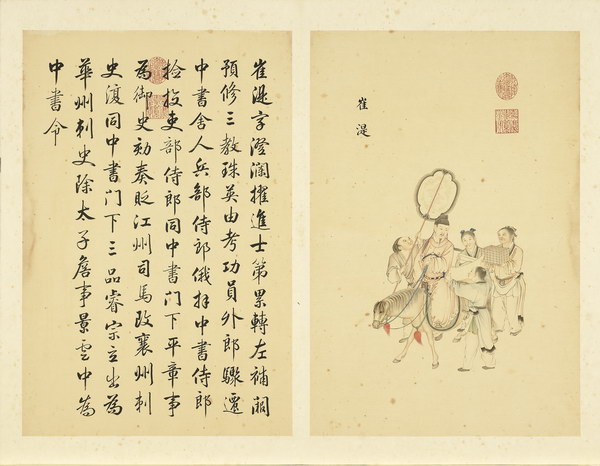 崔湜
崔湜字澄瀾擢進士第累轉左補闕
預修三教珠英由考功員外郎驟遷
中書舍人兵部侍郎俄拜中書侍郎
撿挍吏部侍郎同中書門下平章事
為御史劾奏貶江州司馬改襄州刺
史復同中書門下三品睿宗立出為
華州刺史除太子詹事景雲中為
中書令